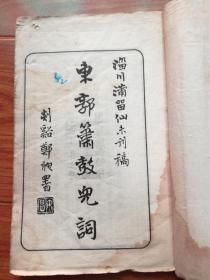 淄川蒲留仙未刊稿
東郭簫鼓兒詞
剡谿鄭㒇署